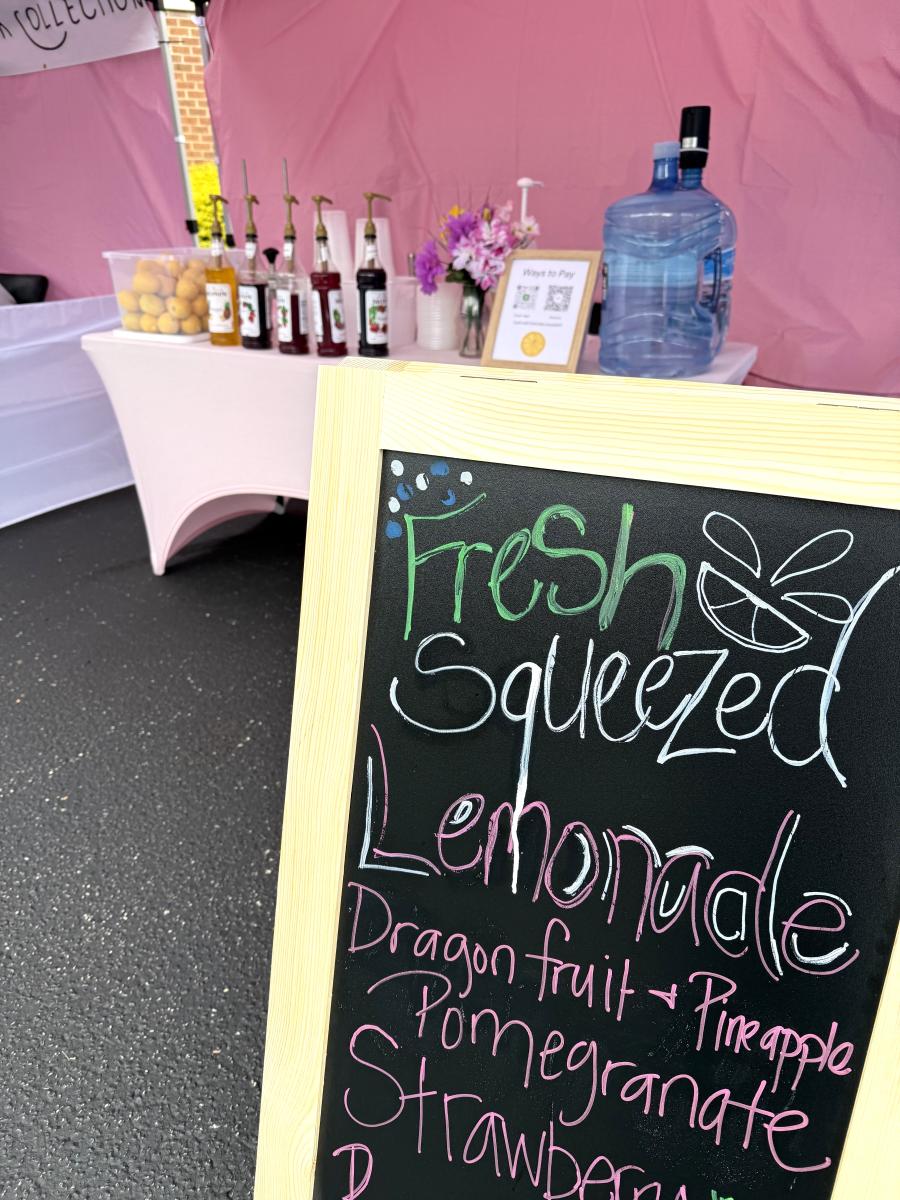 COLLECTION
Ways to Pay
Fresh
Squeezed
Lemonade
Dragon fruit + Pineapple
Pomegranate
Strawberry